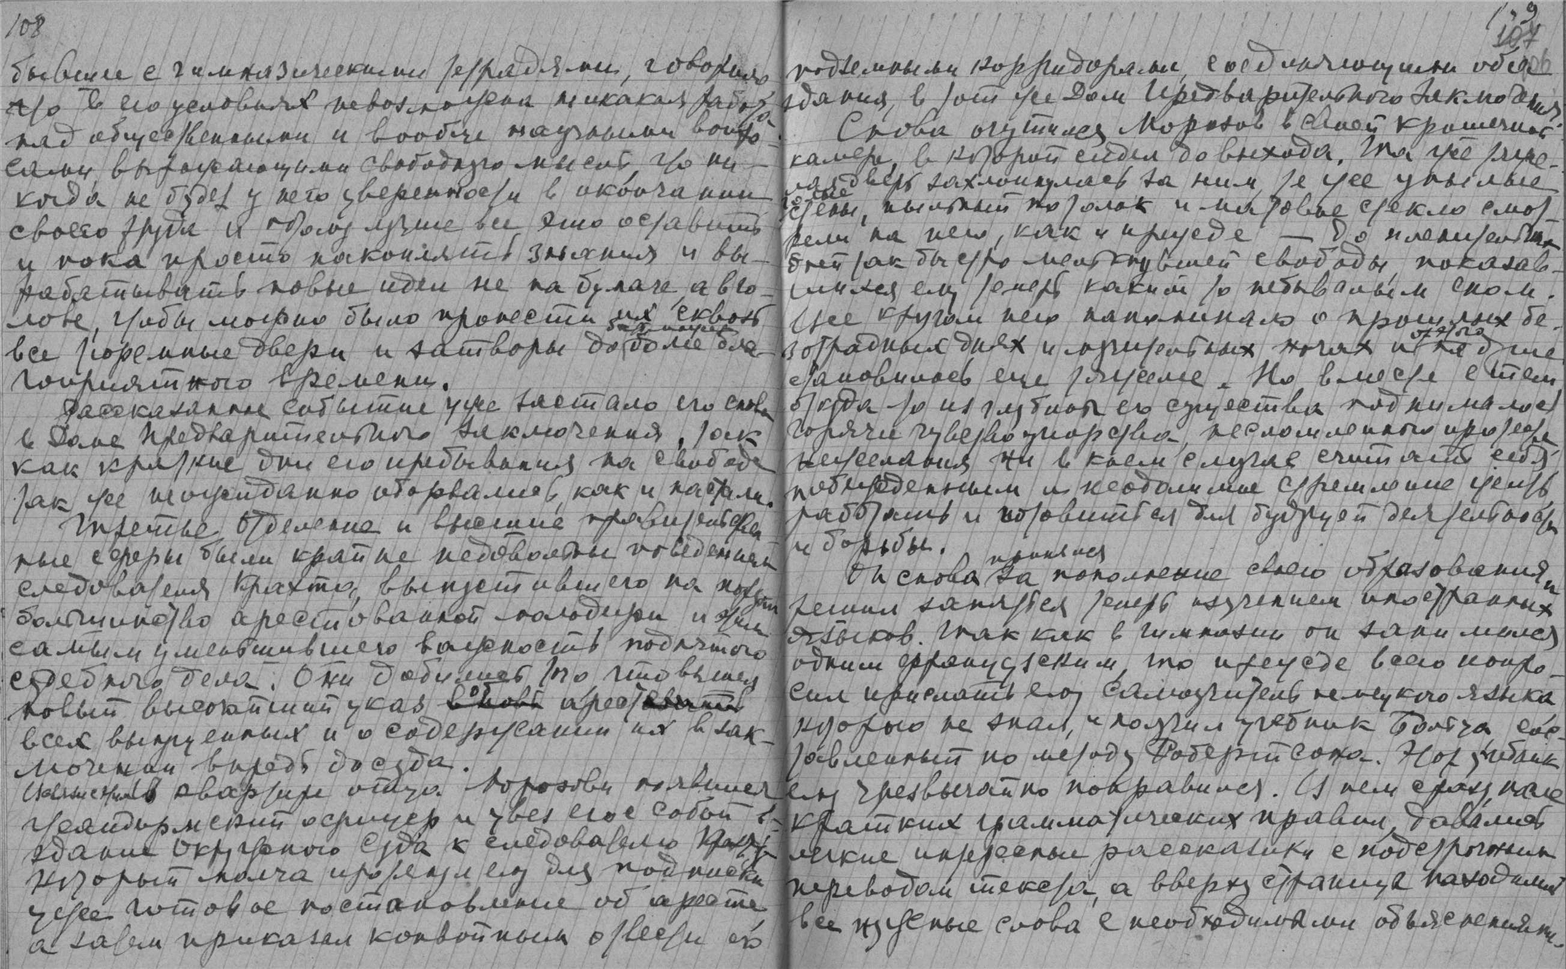 108
бывшие с гимназическими тетрадями, говорило
что в его условиях невозможна никакая работа
над общественными и вообще научными вопро-
сами выражающими свободную мысль, что ни-
когда не будет у него уверенности в окончании
своего труда и потому лучше все это оставить
и пока просто накоплять знания и вы-
рабатывать новые идеи не на бумаге, а в го-
лове, чтобы можно было пронести их сквозь
все тюремные двери и затворы до более бла-
гоприятного времени.
Рассказанное событие уже застало его снова
в Доме Предварительного Заключения, так
как краткие дни его пребывания на свободе
так же неожиданно оборвались, как и настали.
Третье Отделение и высшие правительствен-
ные сферы были крайне недовольны поведением
следователя Крахта, выпустившего на поруки
большинство арестованной молодежи и этим
самым уменьшившего важность поднятого
судебного дела. Они добились то что вышел
новый высочайший указ об аресте
всех выпущенных и о содержании их в зак-
лючении впредь до суда.
в квартире отца Морозова появился
жандармский офицер и увез его с собой в
здание Окружного Суда к следователю Крахту
который молча протянул ему для подписки
уже готовое постановление об аресте
а затем приказал конвойным отвести его
109
107
подземными коридорами, соединяющими оба
здания, в тот же Дом Предварительного Заключения.
Снова очутился Морозов в своей крошечной
камере, в которой сидел до выхода. Та же тяже-
лая дверь захлопнулась за ним, те же унылые
стены, пыльный потолок и матовое стекло смот-
рели на него, как и прежде — до пленительных
дней так быстро мелькнувшей свободы, показав-
шихся ему теперь каким то небывалым сном.
Все кругом него напоминало о прошлых бе-
зотрадных днях и мучительных ночах и от этого на душе
становилось еще тяжелее. Но вместе с тем
откуда то из глубины его существа поднималось
горячее чувство упорства, несломленного протеста
нежелания ни в коем случае считать себя
побежденным и необоримое стремление жить
работать и готовиться для будущей деятельности
и борьбы.
Он снова принялся за пополнение своего образования и
решил заняться теперь изучением иностранных
языков. Так как в гимназии он занимался
одним французским, то прежде всего попро-
сил прислать ему самоучитель немецкого языка
которого не знал, и получил учебник Больца сос-
тавленный по методу Робертсона. Этот учебник
ему чрезвычайно понравился. В нем сразу после
кратких грамматических правил, давались
легкие интересные рассказики с подстрочным
переводом текста, а вверху страницы находились
все нужные слова с необходимыми объяснениями.